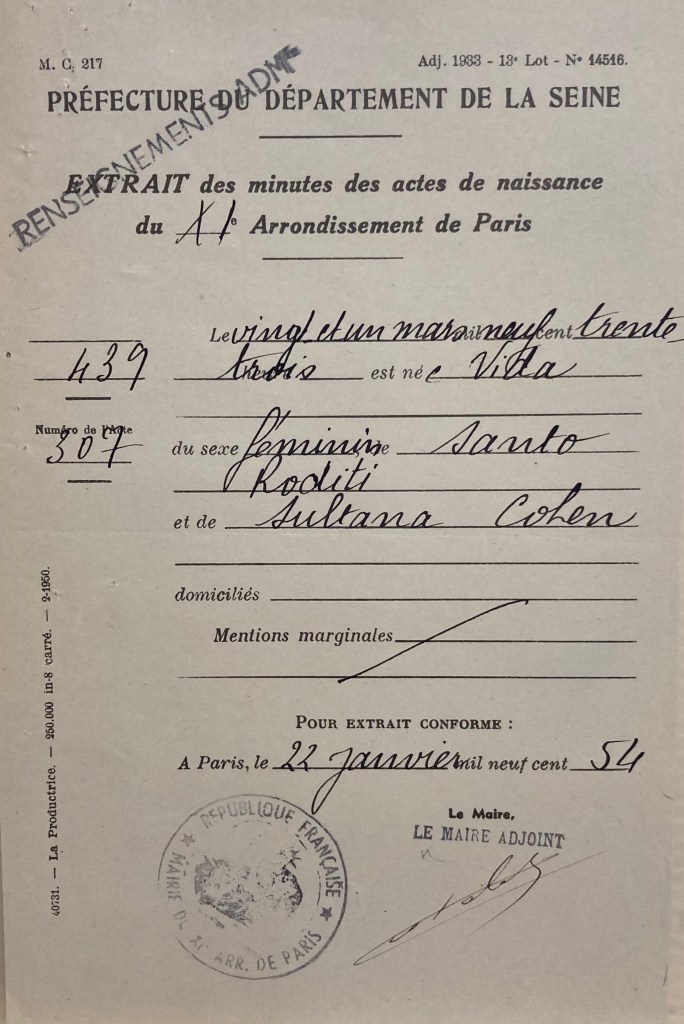 M. C. 217 Adj. 1933 - 13e Lot - No 14516.
RENSEIGNEMENTS ADMF
PRÉFECTURE DU DÉPARTEMENT DE LA SEINE
EXTRAIT des minutes des actes de naissance
du XIe Arrondissement de Paris
Le vingt et un mars mil neuf cent trente
439 trois est née Vida
Numéro de l'Acte
307 du sexe féminin de Santo
Roditi
et de Sultana Cohen
domiciliés
Mentions marginales
POUR EXTRAIT CONFORME :
A Paris, le 22 janvier mil neuf cent 54
Le Maire,
LE MAIRE ADJOINT
RÉPUBLIQUE FRANÇAISE
MAIRIE DU XI ARR. DE PARIS
40731. — La Productrice. — 250.000 in-8 carré. — 2-1950.